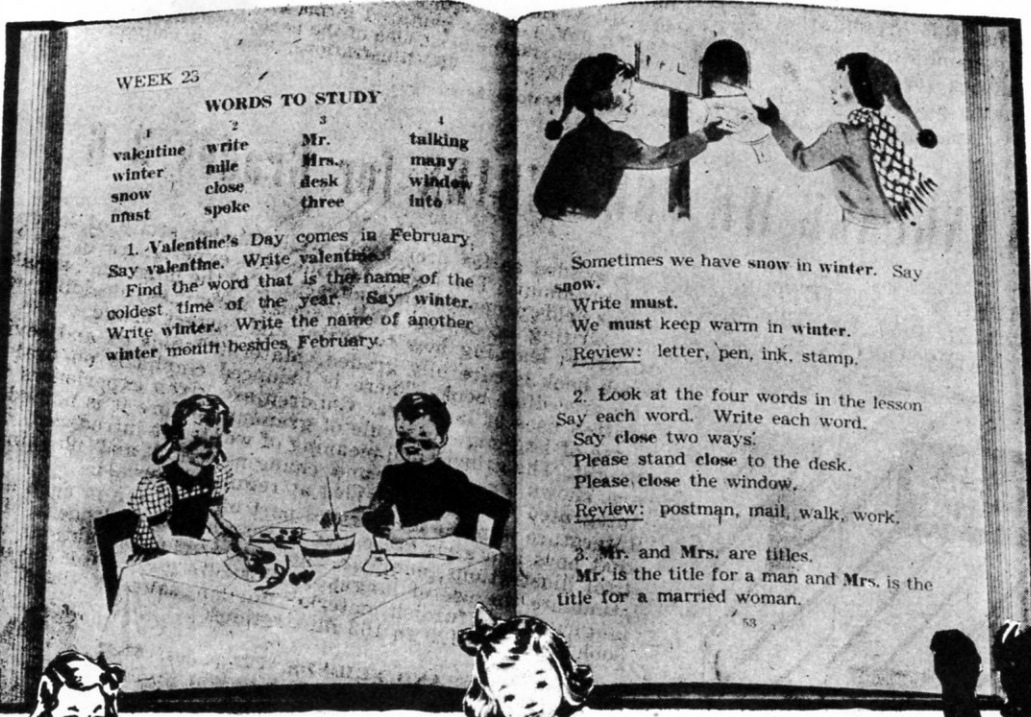 WEEK 23
WORDS TO STUDY
1 2 3 4
valentine write Mr. talking
winter mile Mrs. many
snow close desk window
must spoke three into
1. Valentine's Day comes in February.
Say valentine. Write valentine.
Find the word that is the name of the
coldest time of the year. Say winter.
Write winter. Write the name of another
winter month besides February.
Sometimes we have snow in winter. Say
snow.
Write must.
We must keep warm in winter.
Review: letter, pen, ink, stamp.
2. Look at the four words in the lesson
Say each word. Write each word.
Say close two ways:
Please stand close to the desk.
Please close the window.
Review: postman, mail, walk, work.
3. Mr. and Mrs. are titles.
Mr. is the title for a man and Mrs. is the
title for a married woman.
53